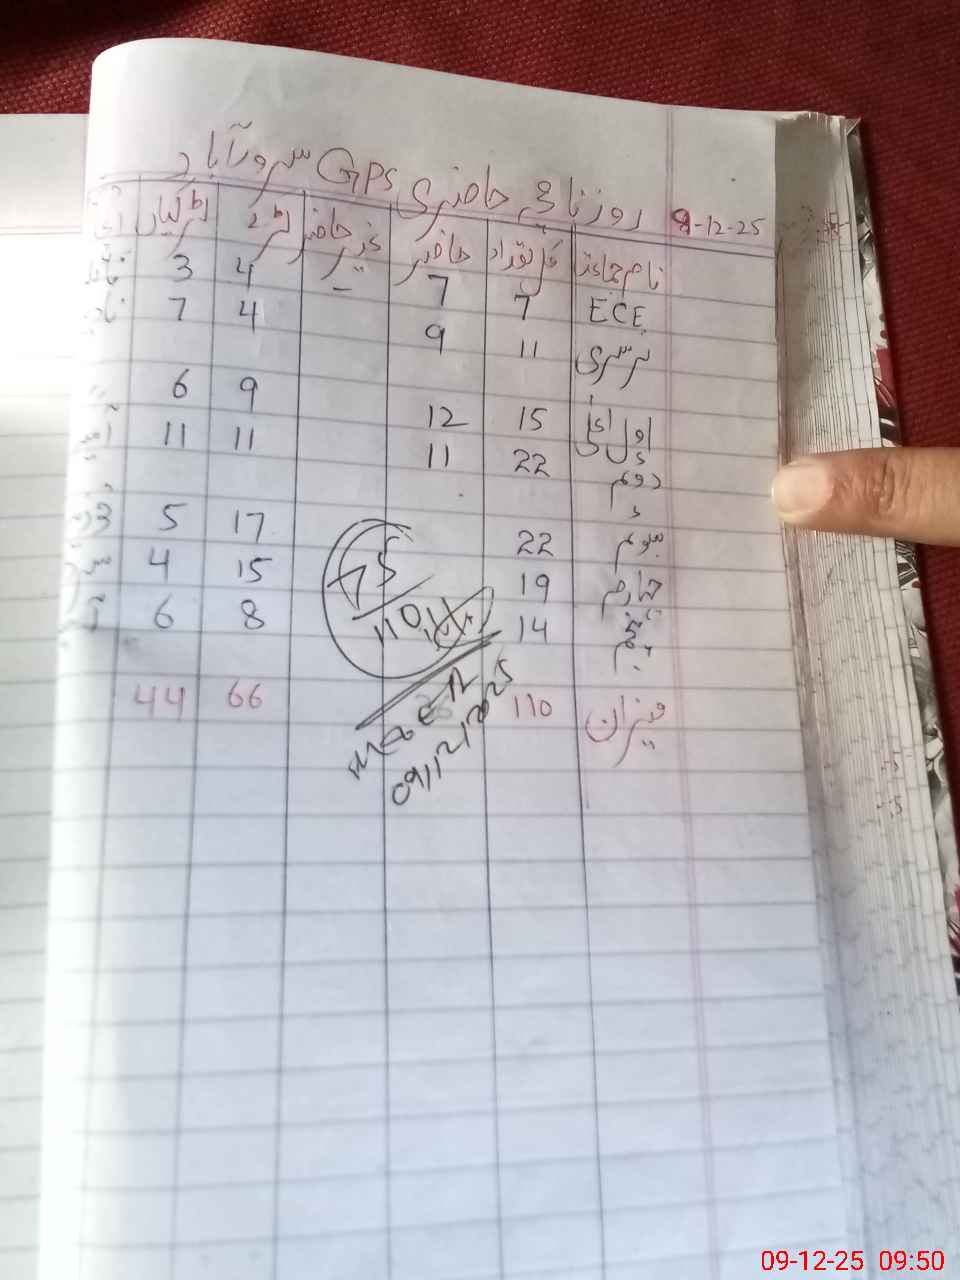 روزنامچہ حاضری GPS سرورآباد
9-12-25
نام جماعت کل تعداد حاضر غیر حاضر لڑکے لڑکیاں
ECE 7 7 - 4 3
نرسری 11 9 4 7
اول 15 12 9 6
دوم 22 11 11 11
سوم 22 17 5
چہارم 19 15 4
پنجم 14 8 6
میزان 110 66 44
75
110
09/12/2025
09-12-25 09:50